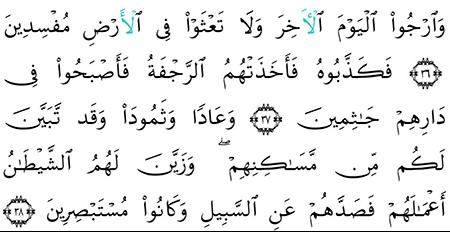 وَٱرْجُوا۟ ٱلْيَوْمَ ٱلْـَٔاخِرَ وَلَا تَعْثَوْا۟ فِى ٱلْأَرْضِ مُفْسِدِينَ
۝٣٦ فَكَذَّبُوهُ فَأَخَذَتْهُمُ ٱلرَّجْفَةُ فَأَصْبَحُوا۟ فِى
دَارِهِمْ جَـٰثِمِينَ ۝٣٧ وَعَادًا وَثَمُودَا۟ وَقَد تَّبَيَّنَ
لَكُم مِّن مَّسَـٰكِنِهِمْ ۖ وَزَيَّنَ لَهُمُ ٱلشَّيْطَـٰنُ
أَعْمَـٰلَهُمْ فَصَدَّهُمْ عَنِ ٱلسَّبِيلِ وَكَانُوا۟ مُسْتَبْصِرِينَ ۝٣٨